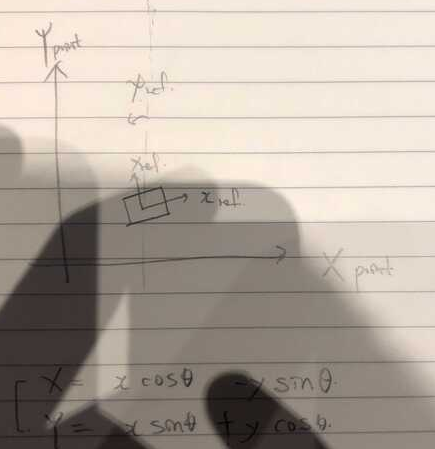 Y point
φ ref.
x ref.
x ref.
X point
X = x cosθ - y sinθ.
Y = x sinθ + y cosθ.